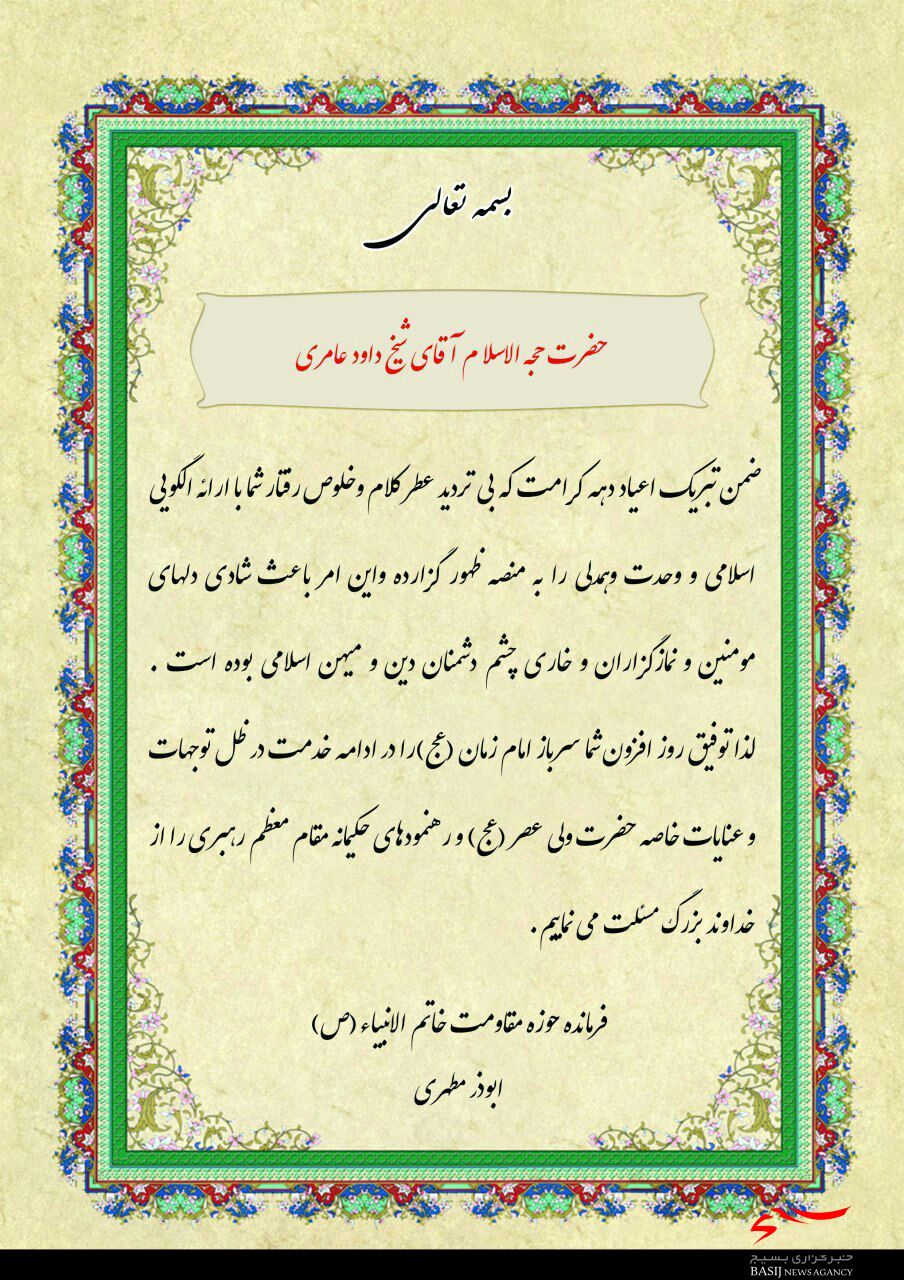 بسمه تعالی
حضرت حجه الاسلام آقای شیخ داود عامری
ضمن تبریک اعیاد دهه کرامت که بی تردید عطر کلام وخلوص رفتار شما با ارائه الگویی
اسلامی و وحدت وهمدلی را به منصه ظهور گزارده واین امر باعث شادی دلهای
مومنین و نمازگزاران و خاری چشم دشمنان دین و میهن اسلامی بوده است .
لذا توفیق روز افزون شما سرباز امام زمان (عج)را در ادامه خدمت در ظل توجهات
و عنایات خاصه حضرت ولی عصر (عج) و رهنمودهای حکیمانه مقام معظم رهبری را از
خداوند بزرگ مسئلت می نماییم .
فرمانده حوزه مقاومت خاتم الانبیاء (ص)
ابوذر مطهری
خبرگزاری بسیج
BASIJ NEWS AGANCY